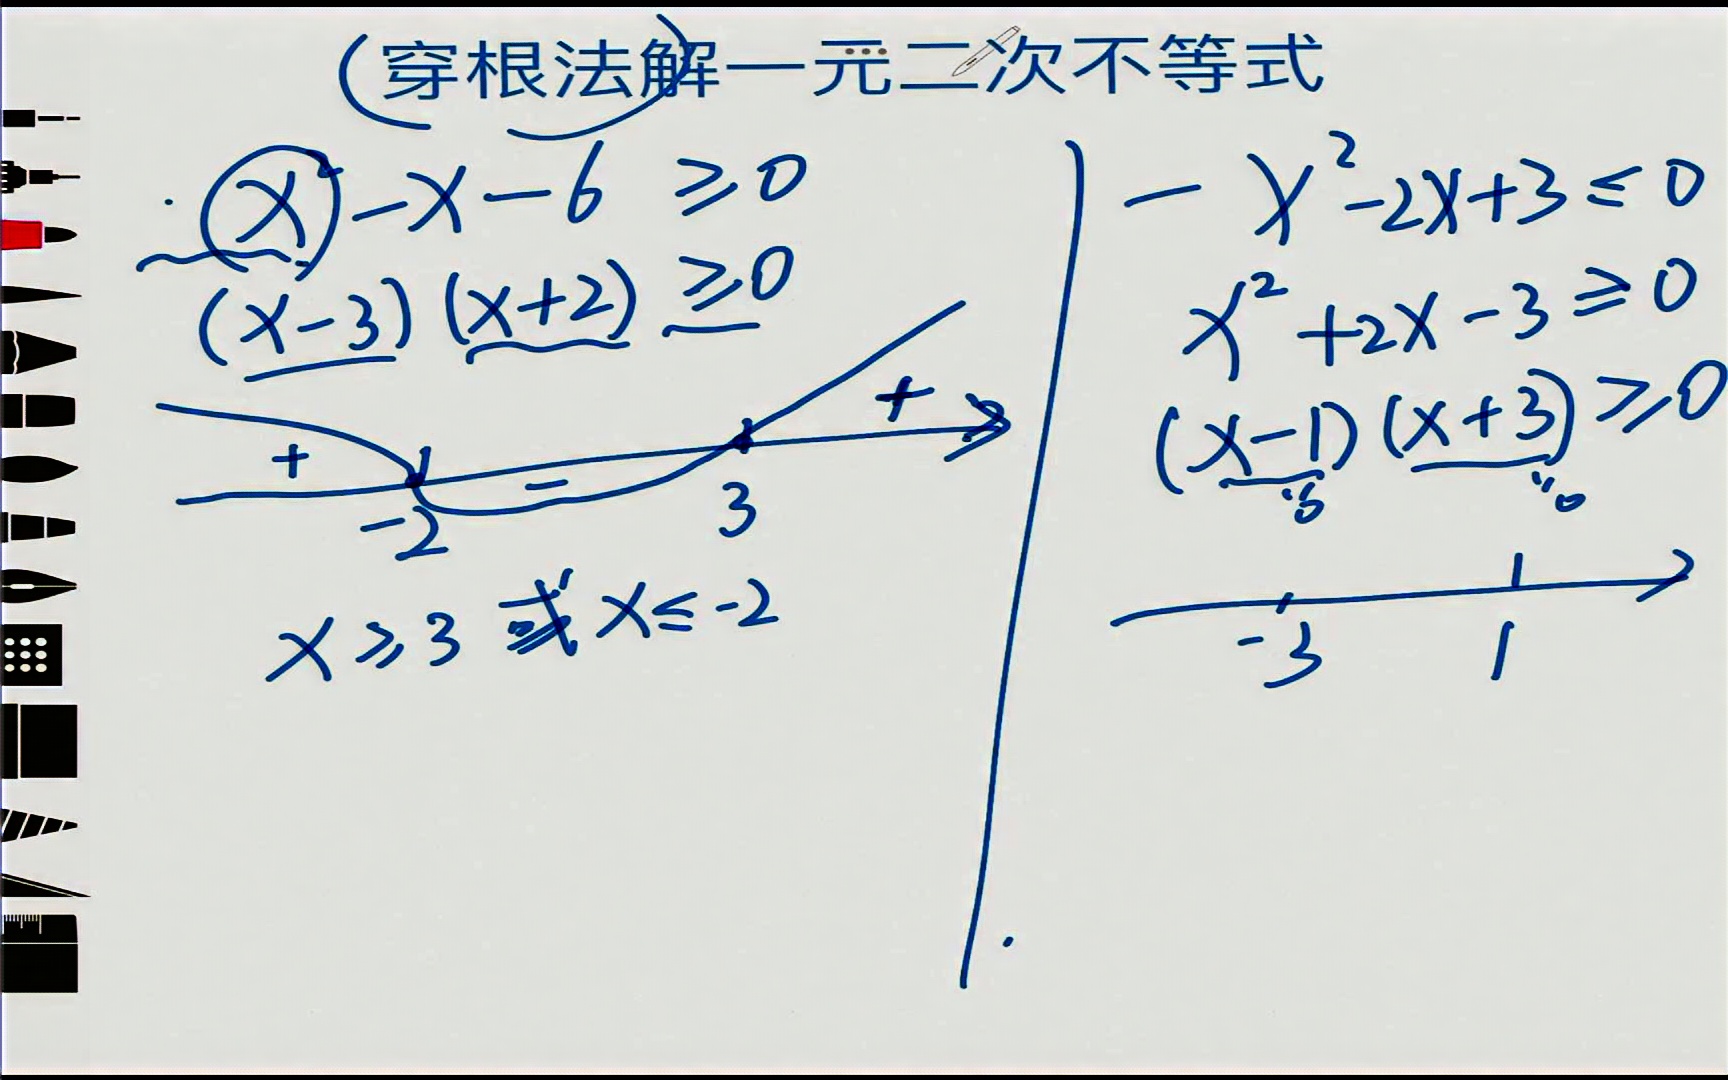 (穿根法)解一元二次不等式
x²-x-6≥0
(x-3)(x+2)≥0
+ - +
-2 3
x≥3 或 x≤-2
-x²-2x+3≤0
x²+2x-3≥0
(x-1)(x+3)≥0
-3 1